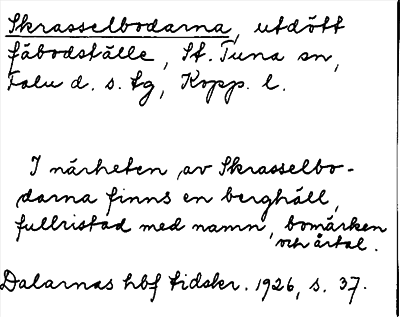 Skrasselbodarna, utdött
fäbodställe, St. Tuna sn,
Falu d. s. tg, Kopp. l.
I närheten av Skrasselbo-
darna finns en berghäll,
fullristad med namn, bomärken
och årtal.
Dalarnas hbf tidskr. 1926, s. 37.